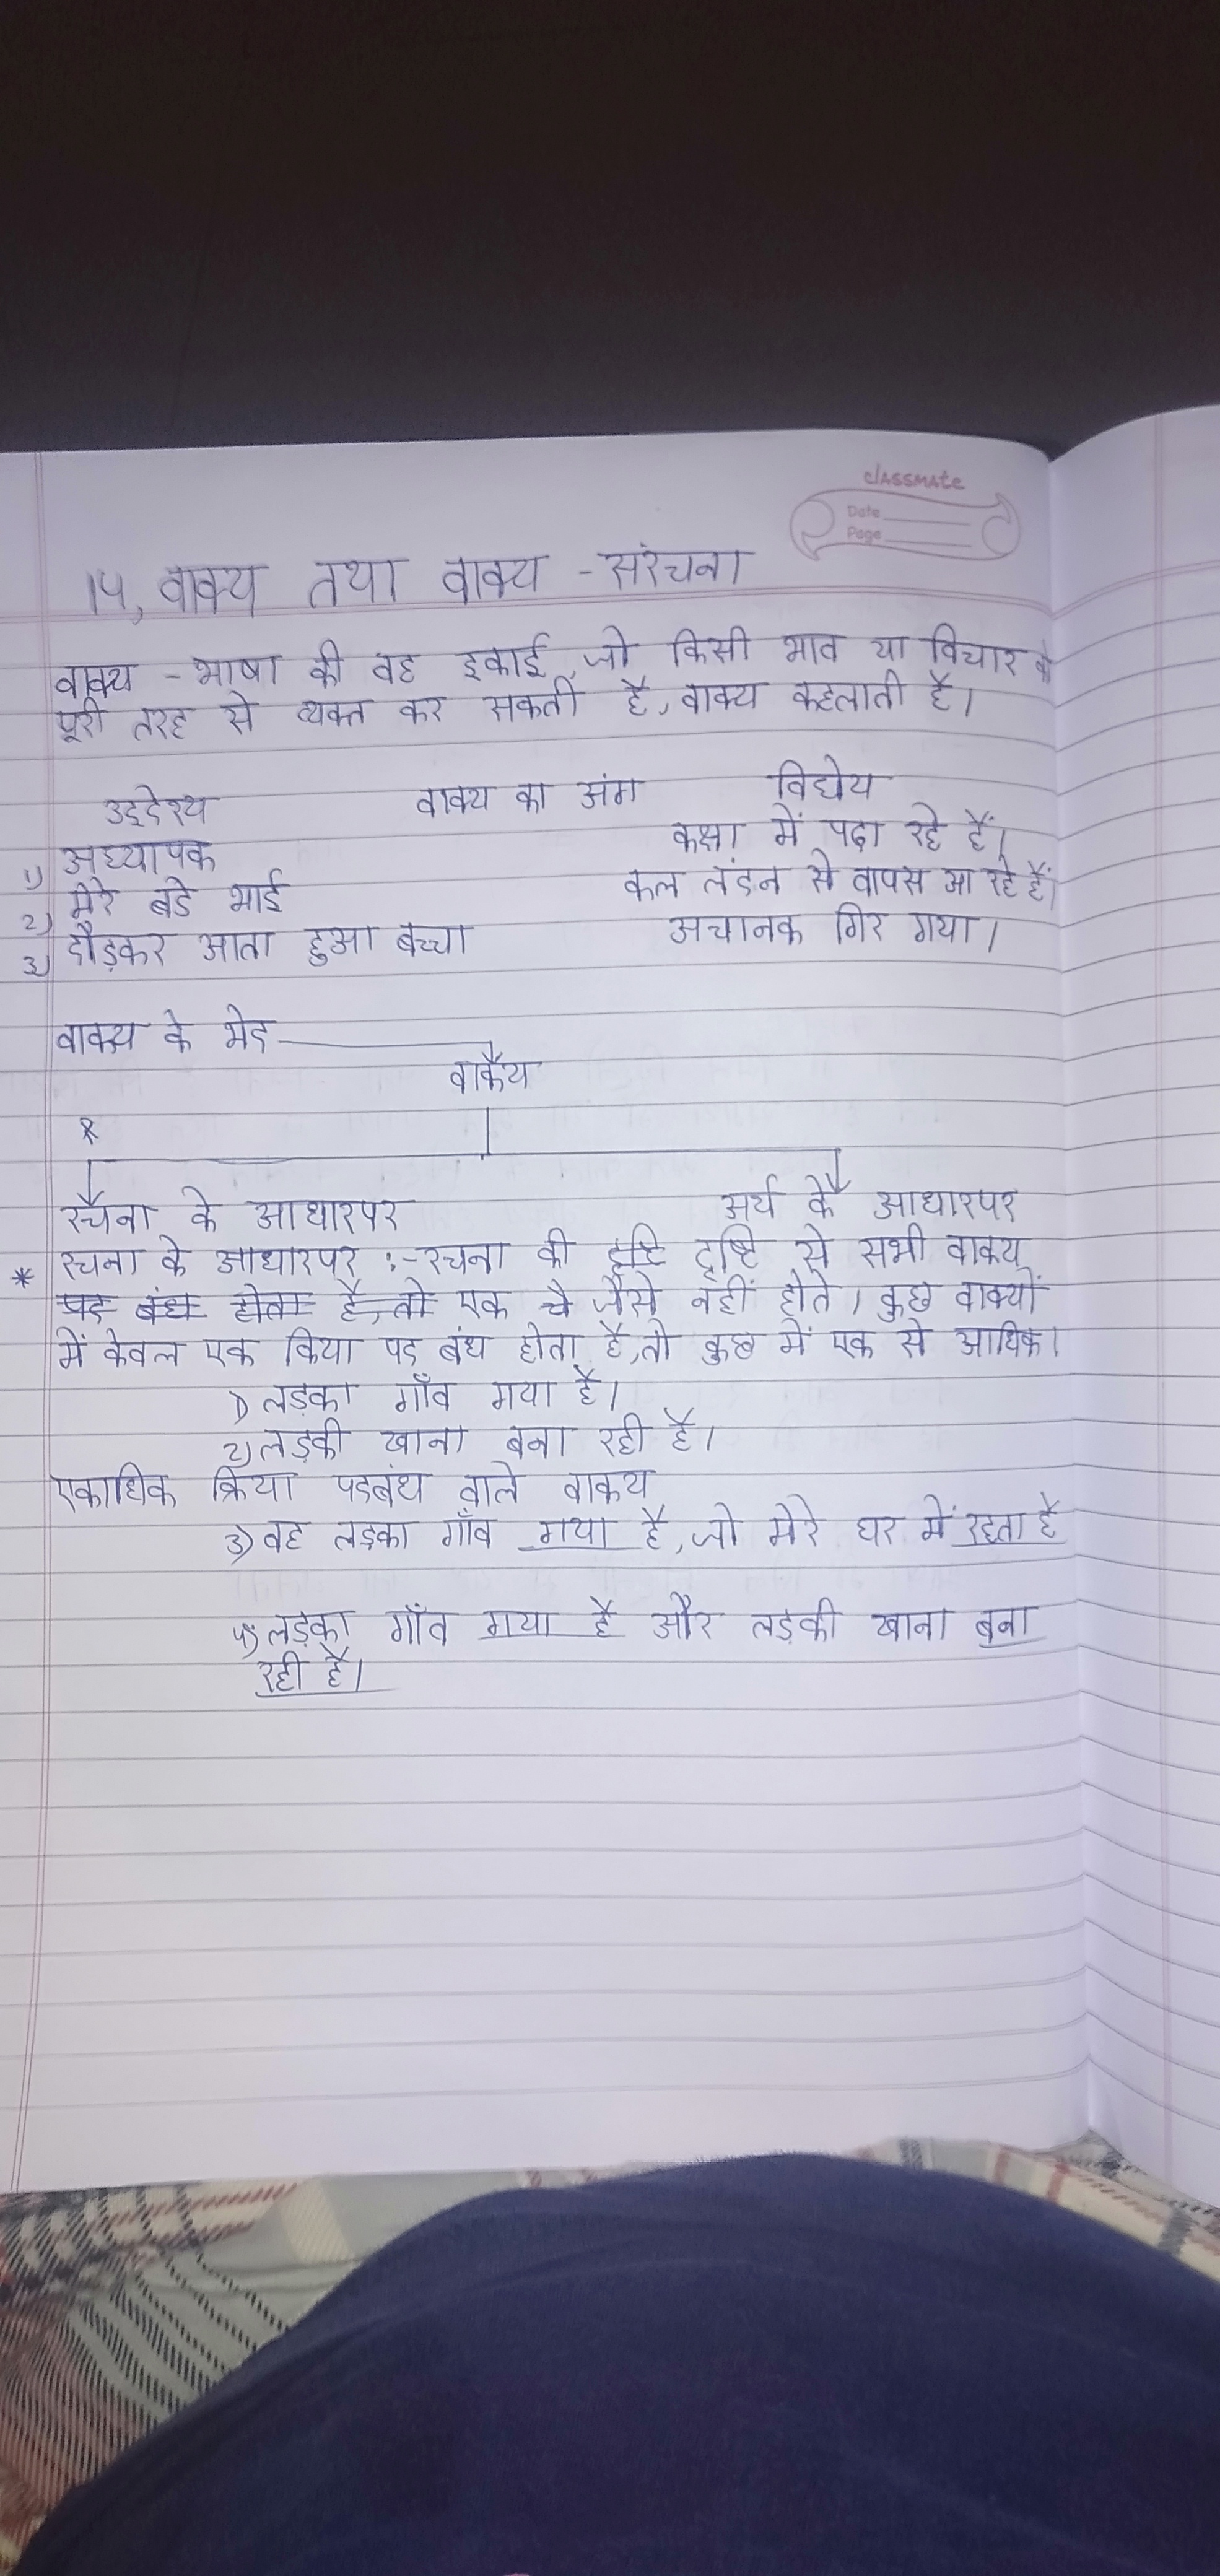 classmate
Date
Page
14, वाक्य तथा वाक्य - संरचना
वाक्य - भाषा की वह इकाई, जो किसी भाव या विचार को
पूरी तरह से व्यक्त कर सकती है, वाक्य कहलाती है।
उद्देश्य वाक्य का अंग विधेय
1) अध्यापक कक्षा में पढ़ा रहे हैं।
2) मेरे बडे भाई कल लंडन से वापस आ रहे हैं।
3) दौड़कर आता हुआ बच्चा अचानक गिर गया।
वाक्य के भेद
वाक्य
रचना के आधारपर अर्थ के आधारपर
* रचना के आधारपर :- रचना की दृष्टि से सभी वाक्य
पद बंध होता है, तो एक जैसे नहीं होते। कुछ वाक्यों
में केवल एक क्रिया पद बंध होता है, तो कुछ में एक से अधिक।
1) लड़का गाँव गया है।
2) लड़की खाना बना रही है।
एकाधिक क्रिया पदबंध वाले वाक्य
3) वह लड़का गाँव गया है, जो मेरे घर में रहता है
4) लड़का गाँव गया है और लड़की खाना बना
रही है।